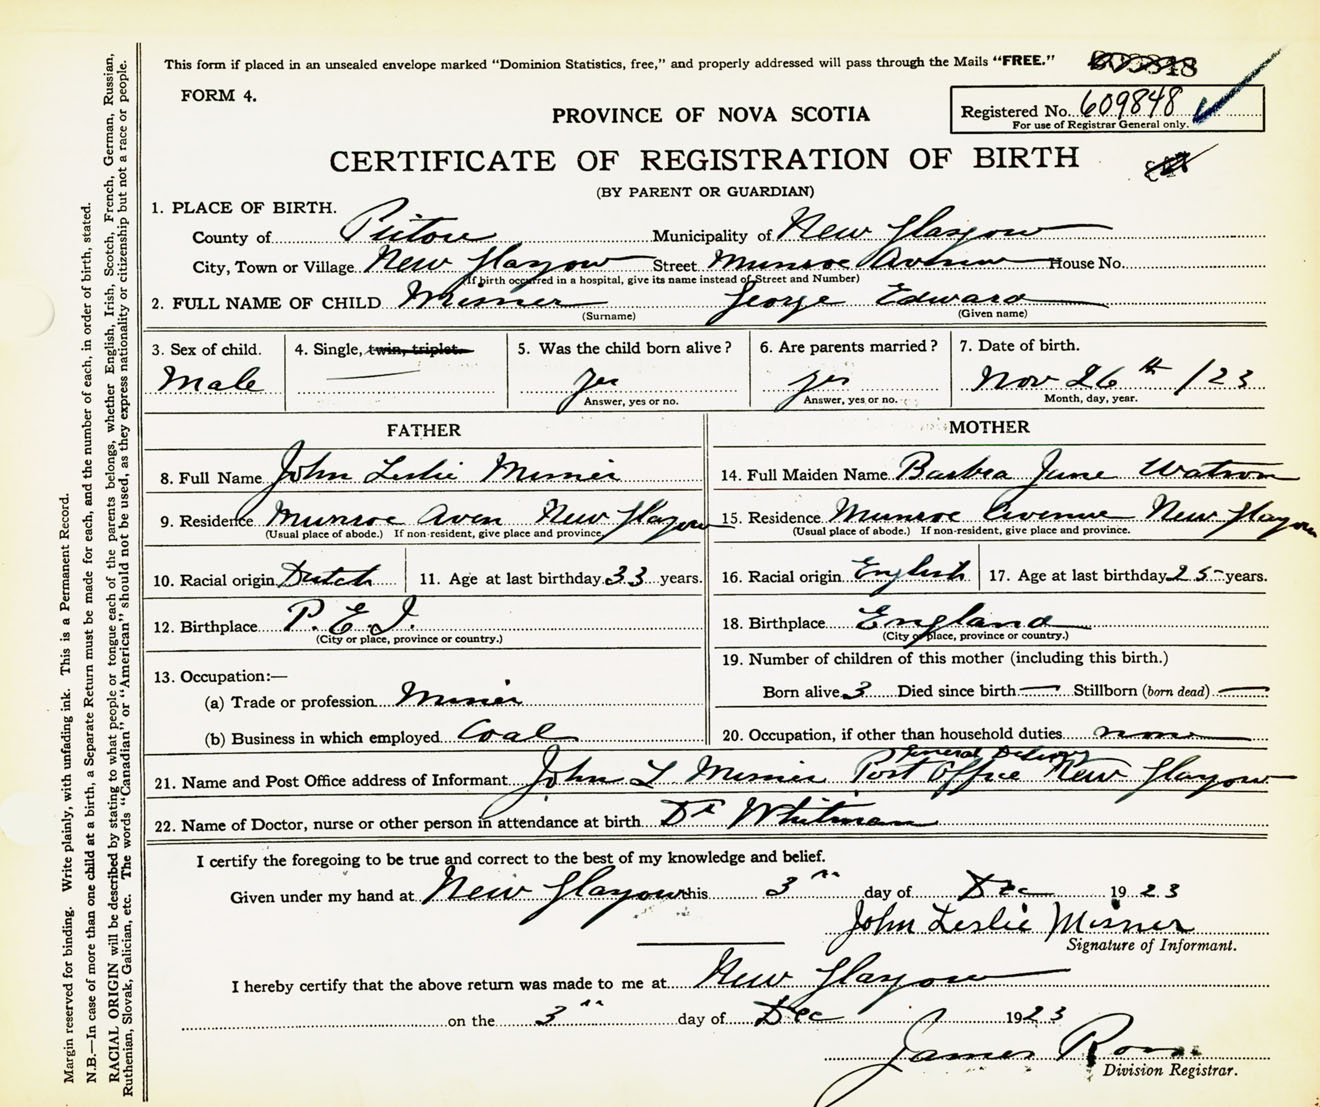 This form if placed in an unsealed envelope marked "Dominion Statistics, free," and properly addressed will pass through the Mails "FREE."
FORM 4.
PROVINCE OF NOVA SCOTIA
Registered No. 609848
For use of Registrar General only.
CERTIFICATE OF REGISTRATION OF BIRTH
(BY PARENT OR GUARDIAN)
1. PLACE OF BIRTH.
County of Pictou Municipality of New Glasgow
City, Town or Village New Glasgow Street Munroe Avenue House No.
(If birth occurred in a hospital, give its name instead of Street and Number)
2. FULL NAME OF CHILD Misner George Edward
(Surname) (Given name)
3. Sex of child. 4. Single, twin, triplet. 5. Was the child born alive? 6. Are parents married? 7. Date of birth.
Male yes yes Nov 26th /23
Answer, yes or no. Answer, yes or no. Month, day, year.
FATHER MOTHER
8. Full Name John Leslie Misner 14. Full Maiden Name Barbra Jane Watson
9. Residence Munroe Aven New Glasgow 15. Residence Munroe Avenue New Glasgow
(Usual place of abode.) If non-resident, give place and province. (Usual place of abode.) If non-resident, give place and province.
10. Racial origin Dutch 11. Age at last birthday 33 years. 16. Racial origin English 17. Age at last birthday 25 years.
12. Birthplace P.E.I. 18. Birthplace England
(City or place, province or country.) (City or place, province or country.)
19. Number of children of this mother (including this birth.)
13. Occupation:—
(a) Trade or profession Miner Born alive 3 Died since birth — Stillborn (born dead) —
(b) Business in which employed Coal 20. Occupation, if other than household duties none
General Delivery
21. Name and Post Office address of Informant John L Misner Post Office New Glasgow
22. Name of Doctor, nurse or other person in attendance at birth Dr Whitman
I certify the foregoing to be true and correct to the best of my knowledge and belief.
Given under my hand at New Glasgow this 3 day of Dec 1923
John Leslie Misner
Signature of Informant.
I hereby certify that the above return was made to me at New Glasgow
on the 3 day of Dec 1923
James
Division Registrar.
Margin reserved for binding. Write plainly, with unfading ink. This is a Permanent Record.
N.B.—In case of more than one child at a birth, a Separate Return must be made for each, and the number of each, in order of birth, stated.
RACIAL ORIGIN will be described by stating to what people or tongue each of the parents belongs, whether English, Irish, Scotch, French, German, Russian,
Ruthenian, Slovak, Galician, etc. The words "Canadian" or "American" should not be used, as they express nationality or citizenship but not a race or people.